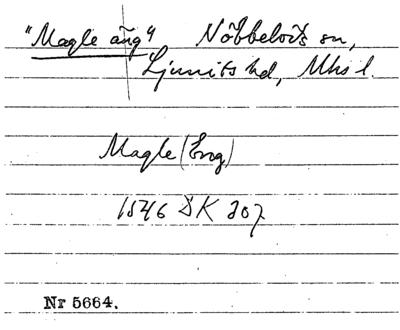 "Magle äng" Nöbbelövs sn,
Ljunits hd, Mhs l.
Magle (Eng)
1546 DK 207
Nr 5664.